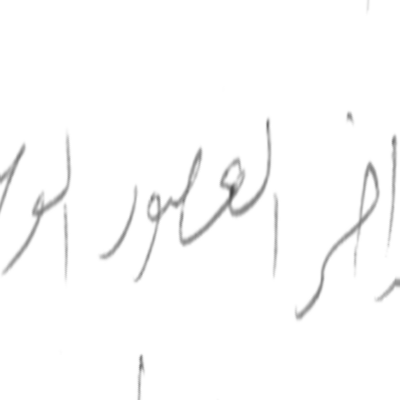 واخر العصور الو